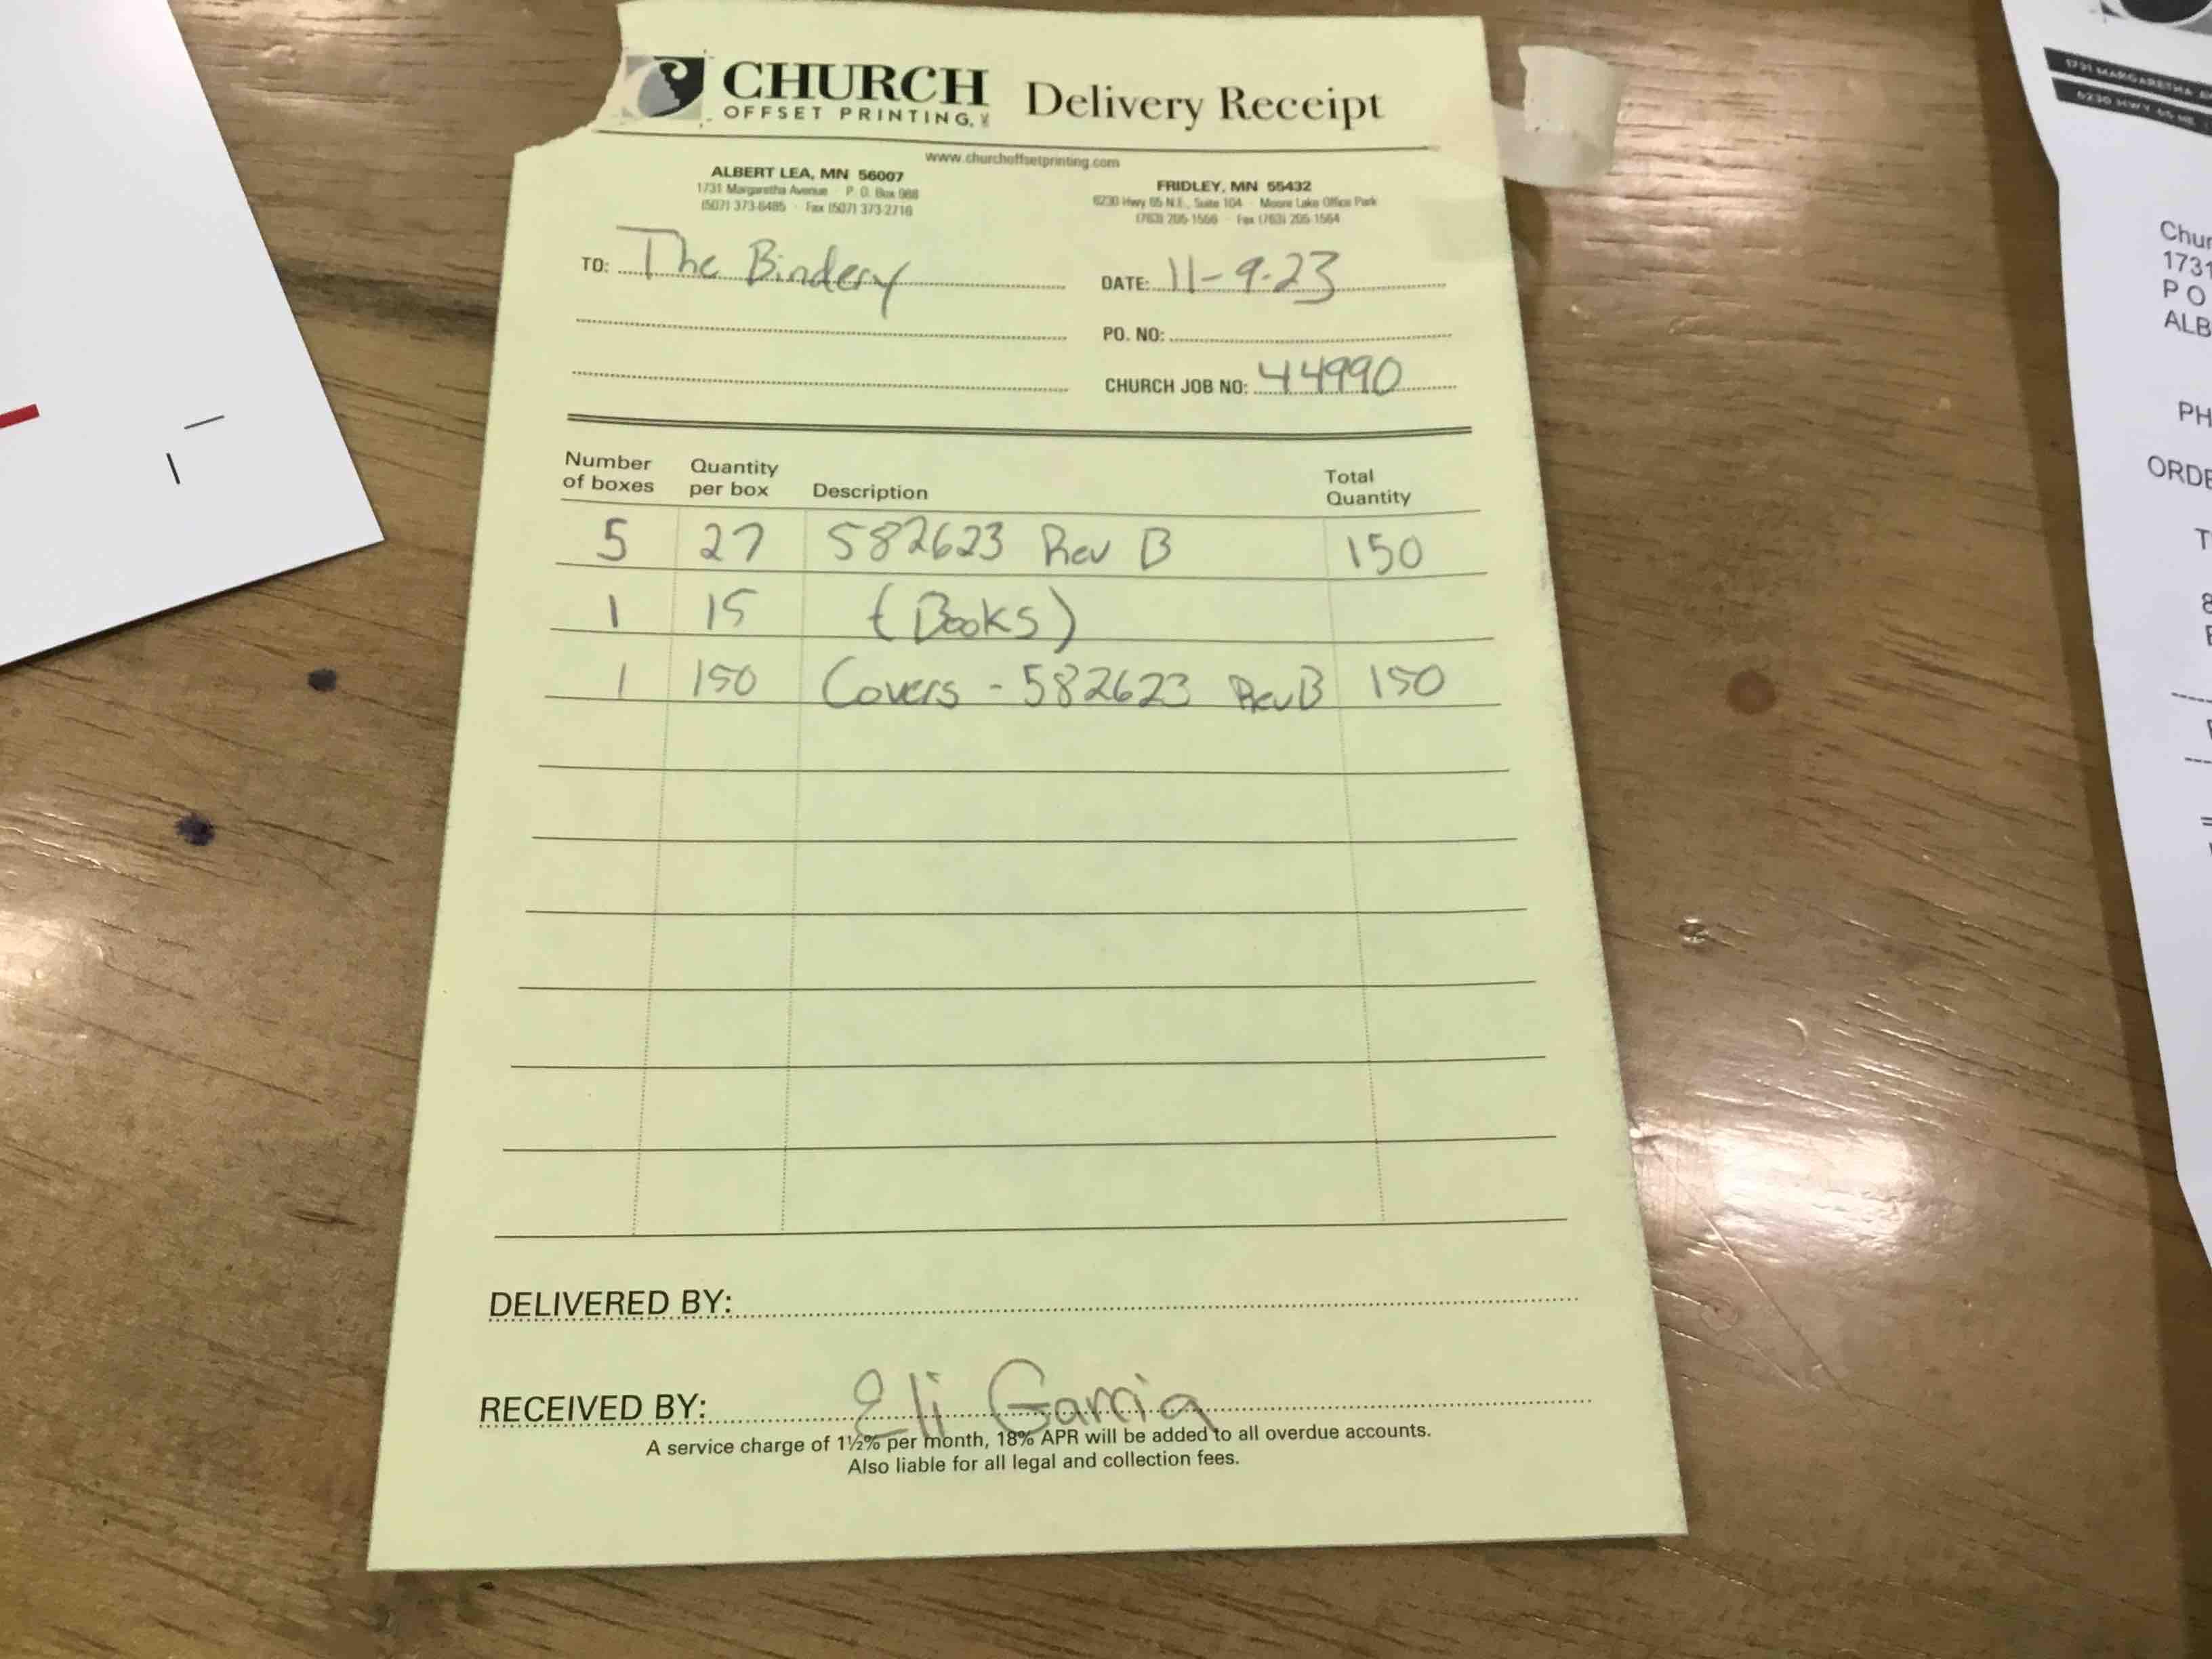 CHURCH
OFFSET PRINTING,
Delivery Receipt
www.churchoffsetprinting.com
ALBERT LEA, MN 56007
1731 Margaretha Avenue · P. O. Box 988
(507) 373-6485 · Fax (507) 373-2716
FRIDLEY, MN 55432
6230 Hwy 65 N.E., Suite 104 · Moore Lake Office Park
(763) 205-1556 · Fax (763) 205-1564
TO: The Bindery
DATE: 11-9-23
PO. NO:
CHURCH JOB NO: 44990
Number of boxes Quantity per box Description Total Quantity
5 27 582623 Rev B 150
1 15 (Books)
1 150 Covers - 582623 Rev B 150
DELIVERED BY:
RECEIVED BY: Eli Garcia
A service charge of 1½% per month, 18% APR will be added to all overdue accounts.
Also liable for all legal and collection fees.
1731 MARGARETHA
6230 HWY 65 NE
1731
P O